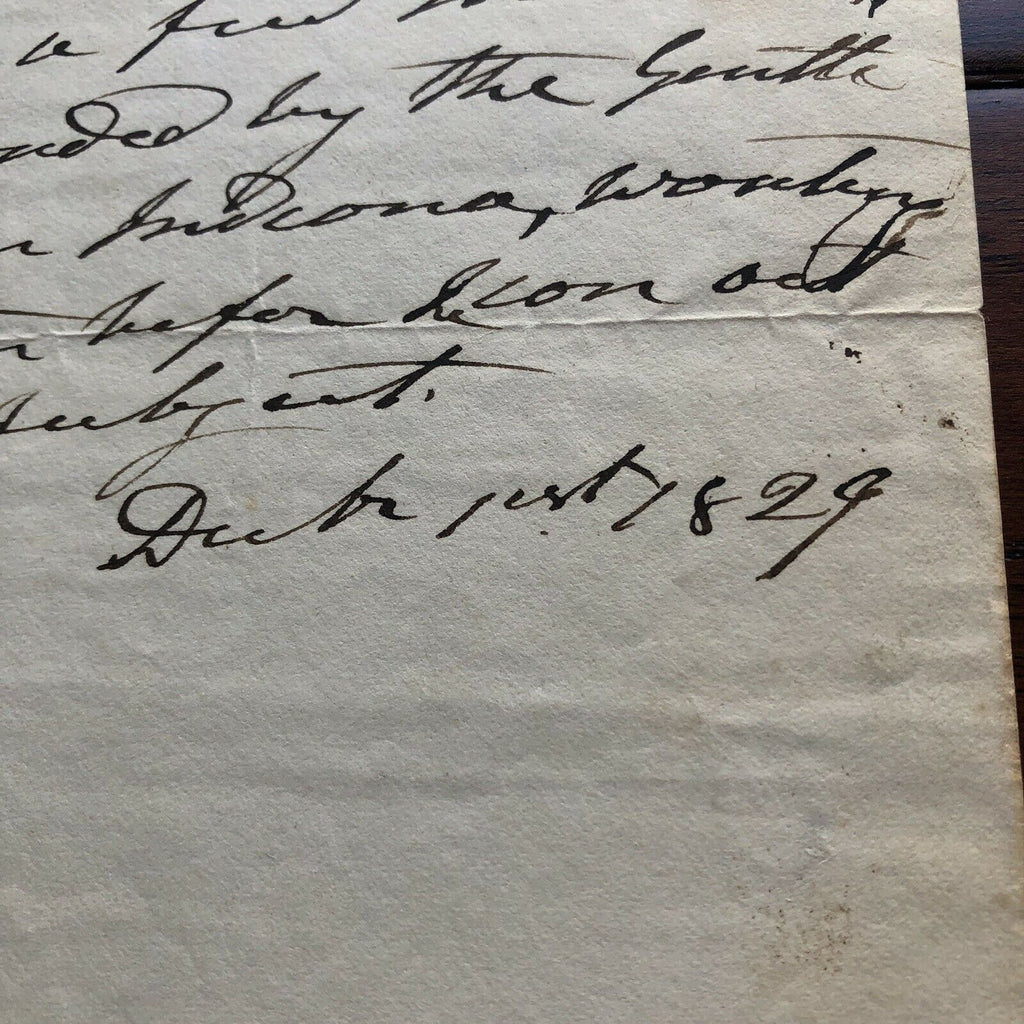 a few
nded by the Gentle
Indiana, worthy
befor I can act
subject.
Decbr 1st 1829